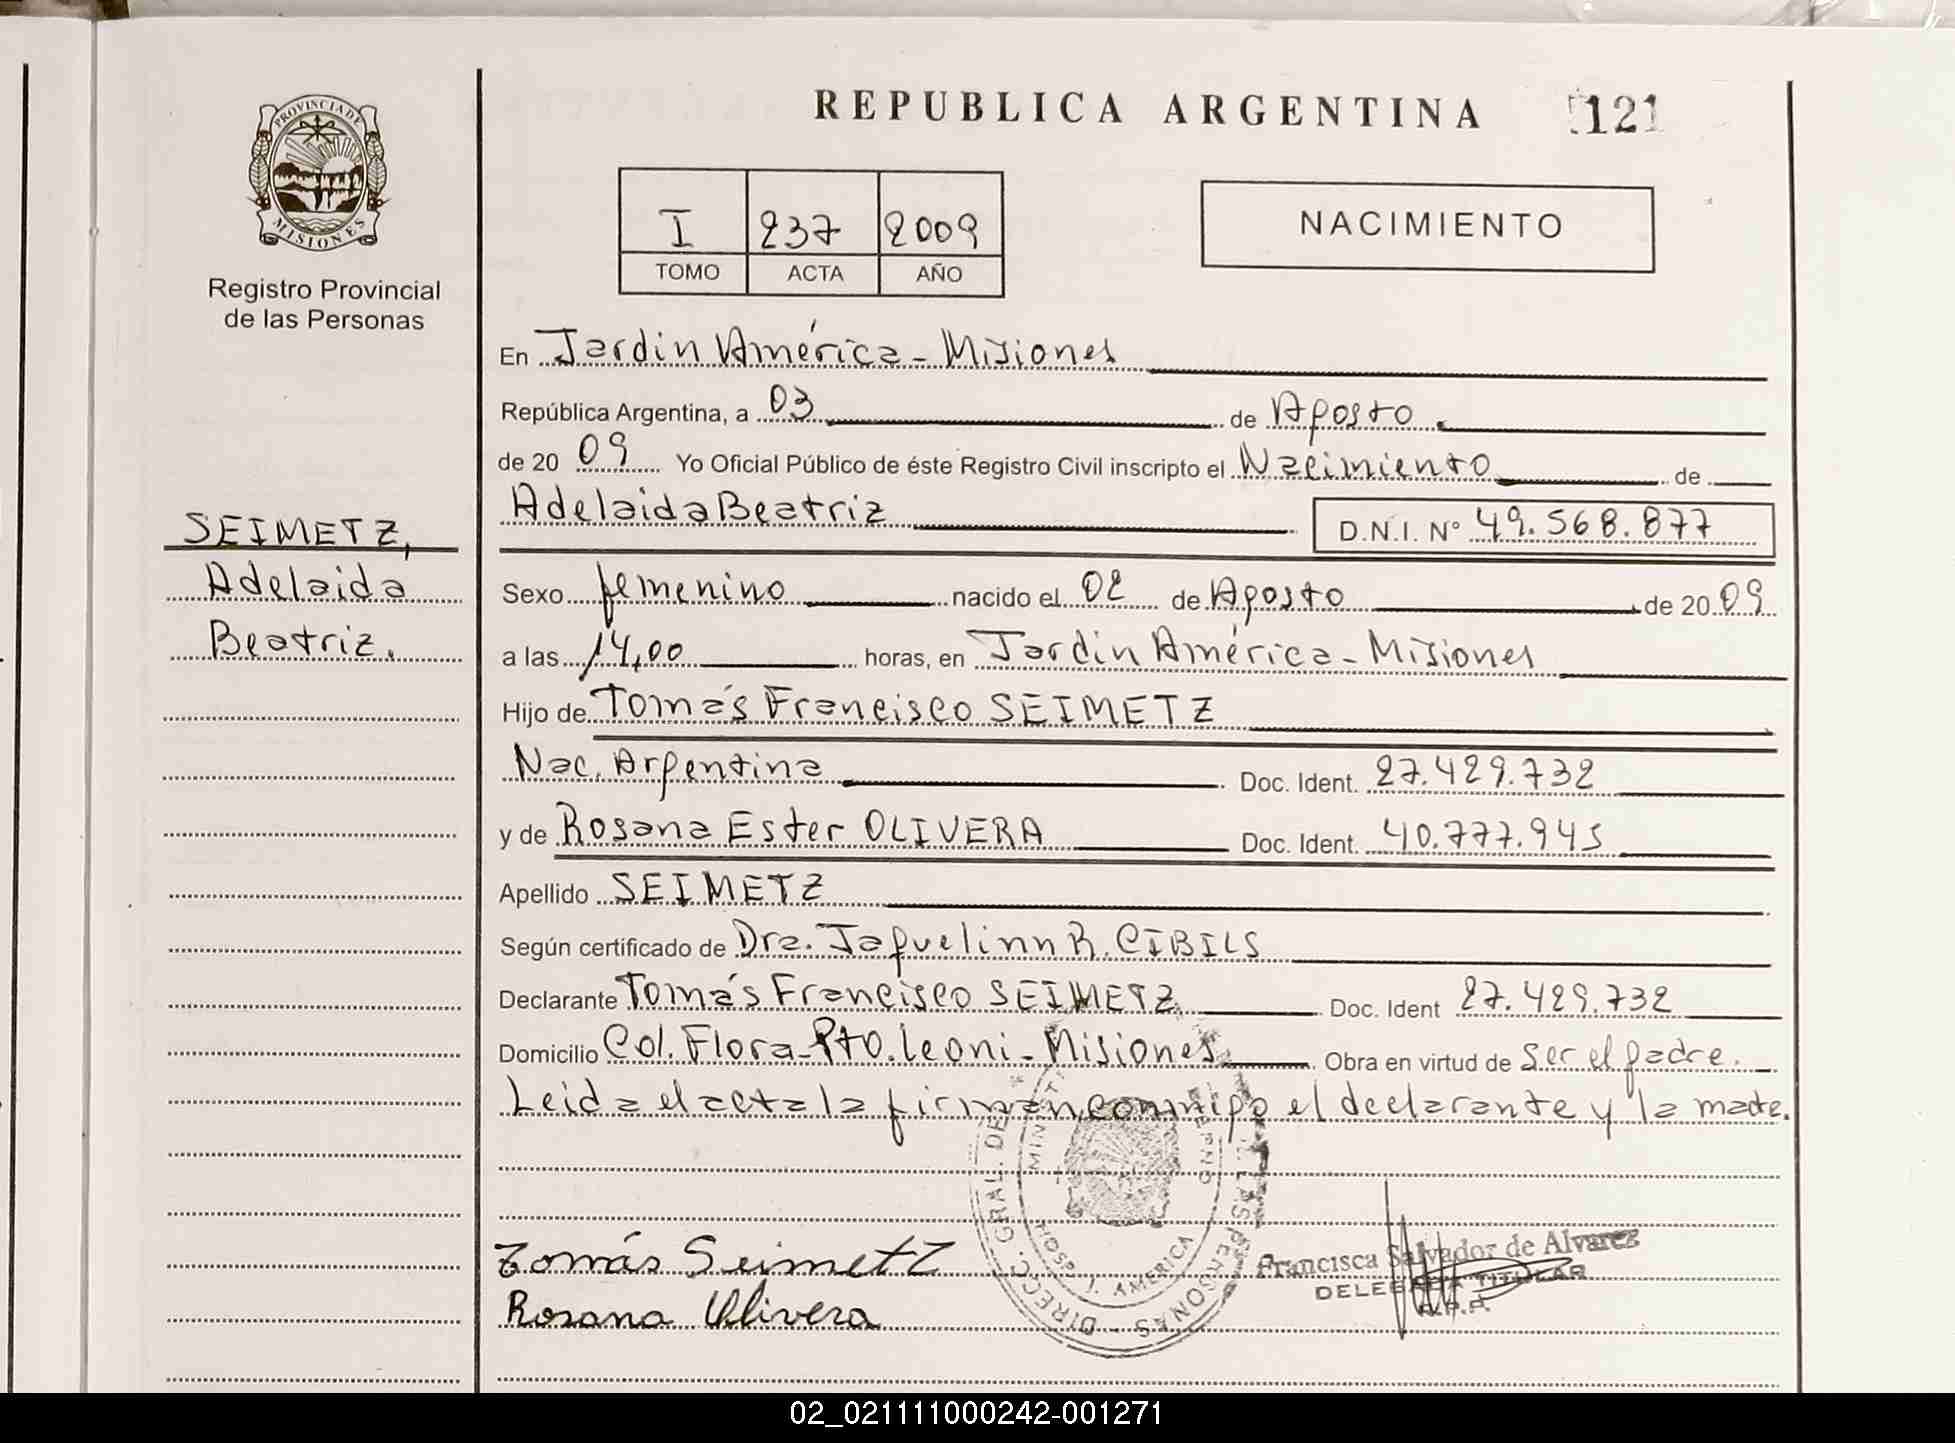 REPUBLICA ARGENTINA 121
PROVINCIA DE MISIONES
Registro Provincial
de las Personas
I 237 2009
TOMO ACTA AÑO
NACIMIENTO
SEIMETZ,
Adelaida
Beatriz.
En Jardín América - Misiones
República Argentina, a 03 de Agosto
de 20 09 Yo Oficial Público de éste Registro Civil inscripto el Nacimiento de
Adelaida Beatriz D.N.I. Nº 49.568.877
Sexo femenino nacido el 02 de Agosto de 20 09
a las 14,00 horas, en Jardín América - Misiones
Hijo de Tomás Francisco SEIMETZ
Nac. Argentina Doc. Ident. 27.429.732
y de Rosana Ester OLIVERA Doc. Ident. 40.777.945
Apellido SEIMETZ
Según certificado de Dra. Jaquelinn R. CIBILS
Declarante Tomás Francisco SEIMETZ Doc. Ident 27.429.732
Domicilio Col. Flora - Pto. Leoni - Misiones Obra en virtud de ser el padre.
Leida el acta la firman conmigo el declarante y la madre.
Tomás Seimetz
Rosana Olivera
DIRECC. GRAL. DE PERSONAS
HOSP. J. AMERICA
Francisca Salvador de Alvarez
DELEGADA TITULAR
R.P.P.
02_021111000242-001271